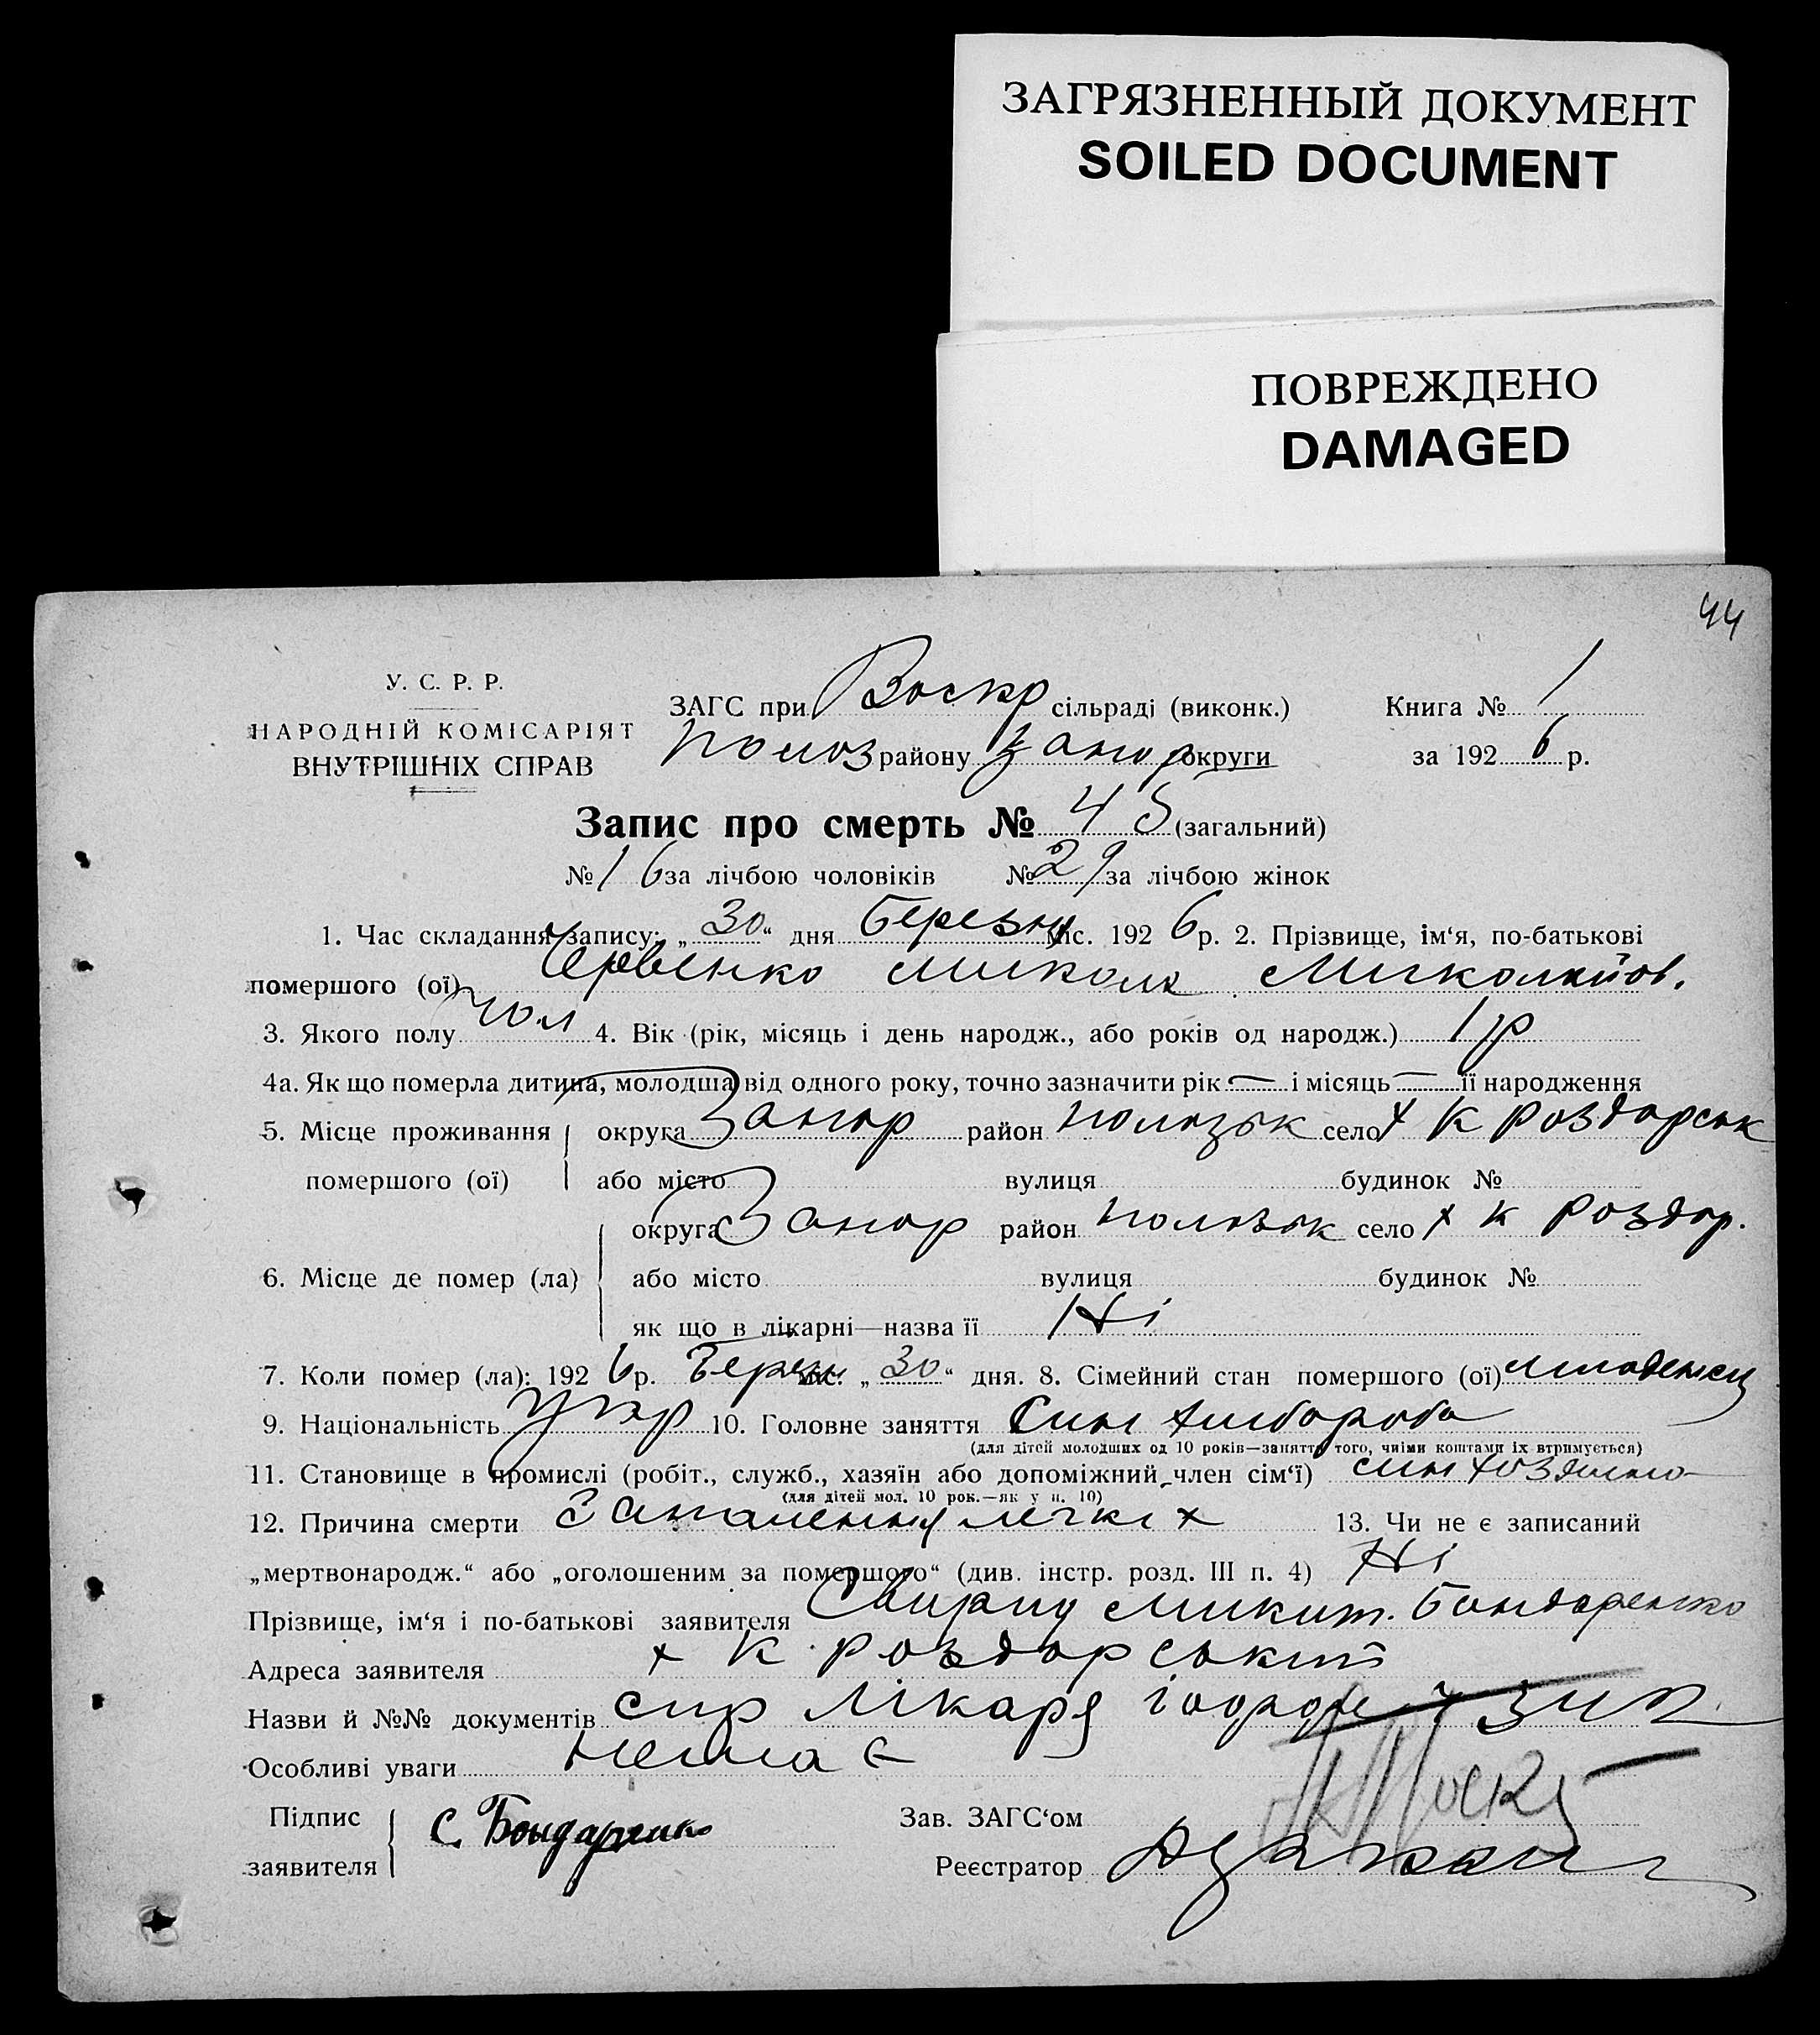 ЗАГРЯЗНЕННЫЙ ДОКУМЕНТ
SOILED DOCUMENT
ПОВРЕЖДЕНО
DAMAGED
44
У. С. Р. Р.
НАРОДНІЙ КОМІСАРІЯТ
ВНУТРІШНІХ СПРАВ
ЗАГС при Воскр сільраді (виконк.) Книга № 1
Полоз району Запор округи за 1926 р.
Запис про смерть № 45 (загальний)
№ 16 за лічбою чоловіків № 29 за лічбою жінок
1. Час складання запису: „30“ дня березня міс. 1926 р. 2. Прізвище, ім‘я, по-батькові
помершого (ої) Червенко Микола Миколайов.
3. Якого полу чол 4. Вік (рік, місяць і день народж., або років од народж.) 1 р
4а. Як що померла дитина, молодша від одного року, точно зазначити рік — і місяць — її народження
5. Місце проживання помершого (ої) округа Запор район Полозьк село х К Роздорськ
або місто вулиця будинок №
6. Місце де помер (ла) округа Запор район Полозьк село х К Роздор.
або місто вулиця будинок №
як що в лікарні—назва її Ні
7. Коли помер (ла): 1926 р. Березн міс. „30“ дня. 8. Сімейний стан помершого (ої) младенец
9. Національність Укр 10. Головне заняття Син хлібороба
(для дітей молодших од 10 років—заняття того, чиїми коштами їх втримується)
11. Становище в промислі (робіт., служб., хазяїн або допоміжний член сім‘ї) син
(для дітей мол. 10 рок.—як у п. 10)
12. Причина смерти Запалення легких 13. Чи не є записаний
„мертвонародж.“ або „оголошеним за помершого“ (див. інстр. розд. III п. 4) Ні
Прізвище, ім‘я і по-батькові заявителя Свирид Микит. Бондаренко
Адреса заявителя х К Роздорський
Назви й №№ документів спр лікаря
Особливі уваги Немає
Підпис заявителя С. Бондаренко
Зав. ЗАГС‘ом
Реєстратор